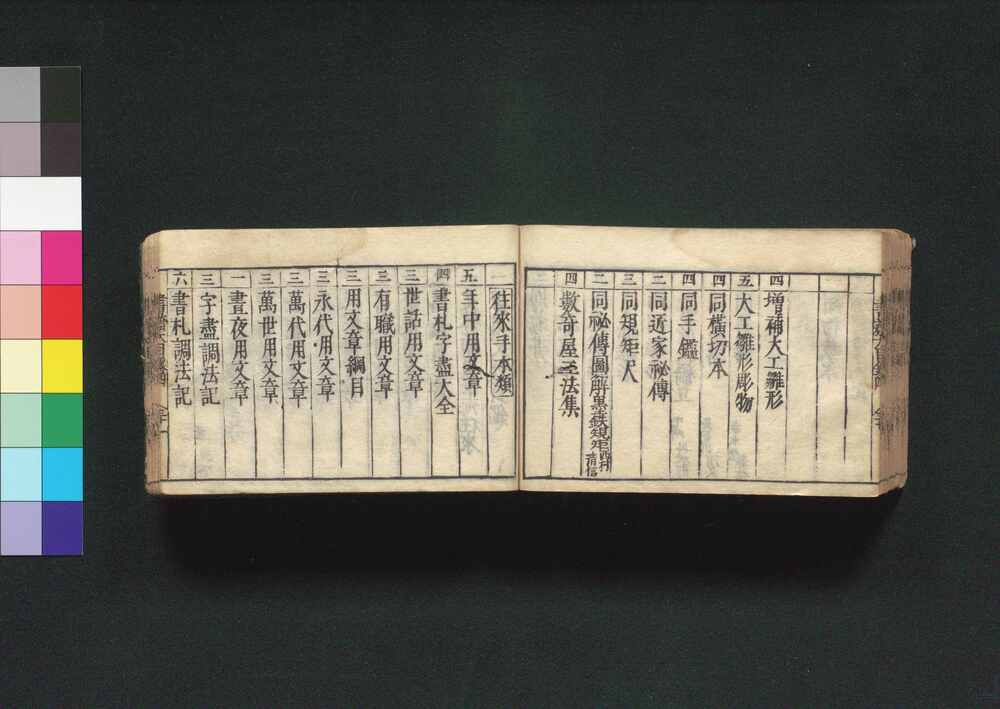 四 増補大工雛形
五 大工雛形彫物
四 同橫切本
四 同手鑑
二 同近家祕傳
三 同規矩尺
二 同祕傳圖解墨鉄規矩 西村清信
四 數奇屋工法集
往來手本類
五 年中用文章
四 書札字盡大全
三 世話用文章
三 有職用文章
三 用文章綱目
三 永代用文章
三 萬代用文章
三 萬世用文章
一 晝夜用文章
三 字盡調法記
六 書札調法記